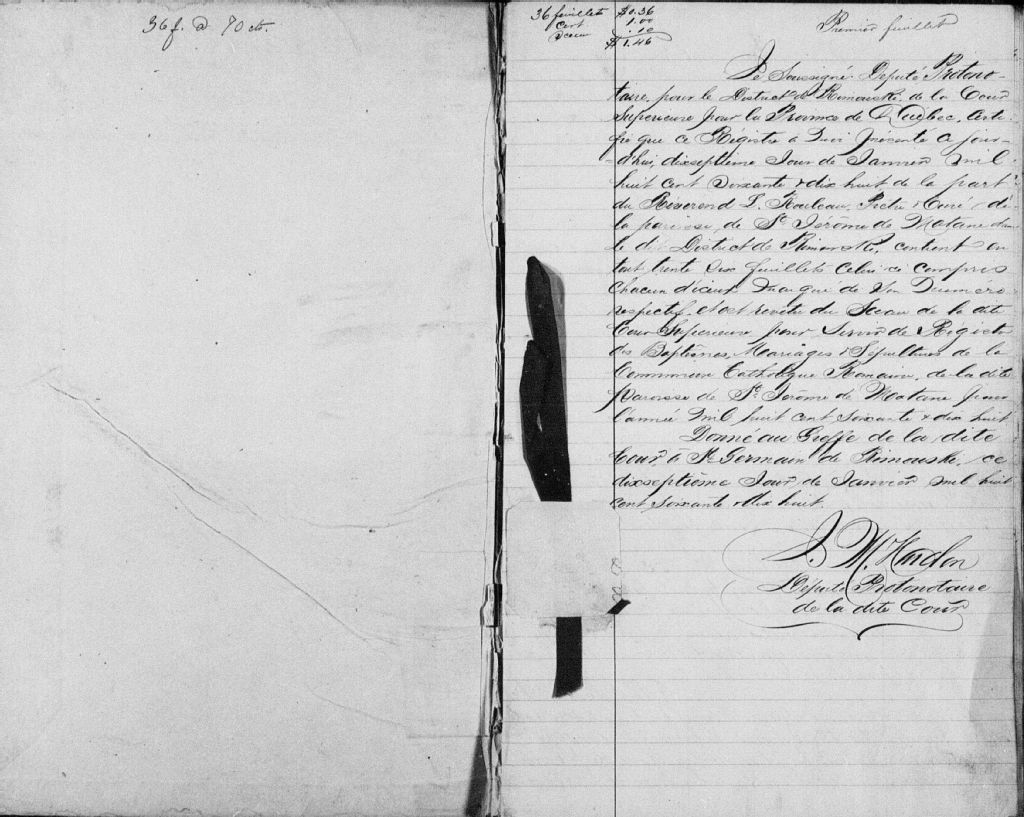 36 f. @ 70 cts.
36 feuillets $0.36
Cert 1.00
Sceau .10
$1.46
Premier feuillet
Je Soussigné Député Protono-
taire, pour le District de Rimouski, de la Cour
Superieure pour la Province de Québec, Certi-
fie que ce Régistre à moi présenté ce jour-
d'hui, dixseptième Jour de Janvier mil
huit cent Soixante & dix huit de la part
du Reverend L. Rouleau, Pretre & Curé, de
la paroisse de St Jérôme de Matane dans
le dt District de Rimouski, contient en
tout trente Six feuillets Celui ci compris
Chacun d'iceux marqué de Son Numero
respectif & est revêtu du Sceau de la dite
Cour Superieure, pour Servir de Régistre
des Baptêmes, Mariages & Sépultures de la
Commune Catholique Romaine, de la dite
Paroisse de St Jérôme de Matane pour
l'année Mil huit cent Soixante & dix huit
Donné au Greffe de la dite
Cour, à St Germain de Rimouski, ce
dixseptième Jour de Janvier mil huit
cent Soixante & dix huit.
Députe Protonotaire
de la dite Cour